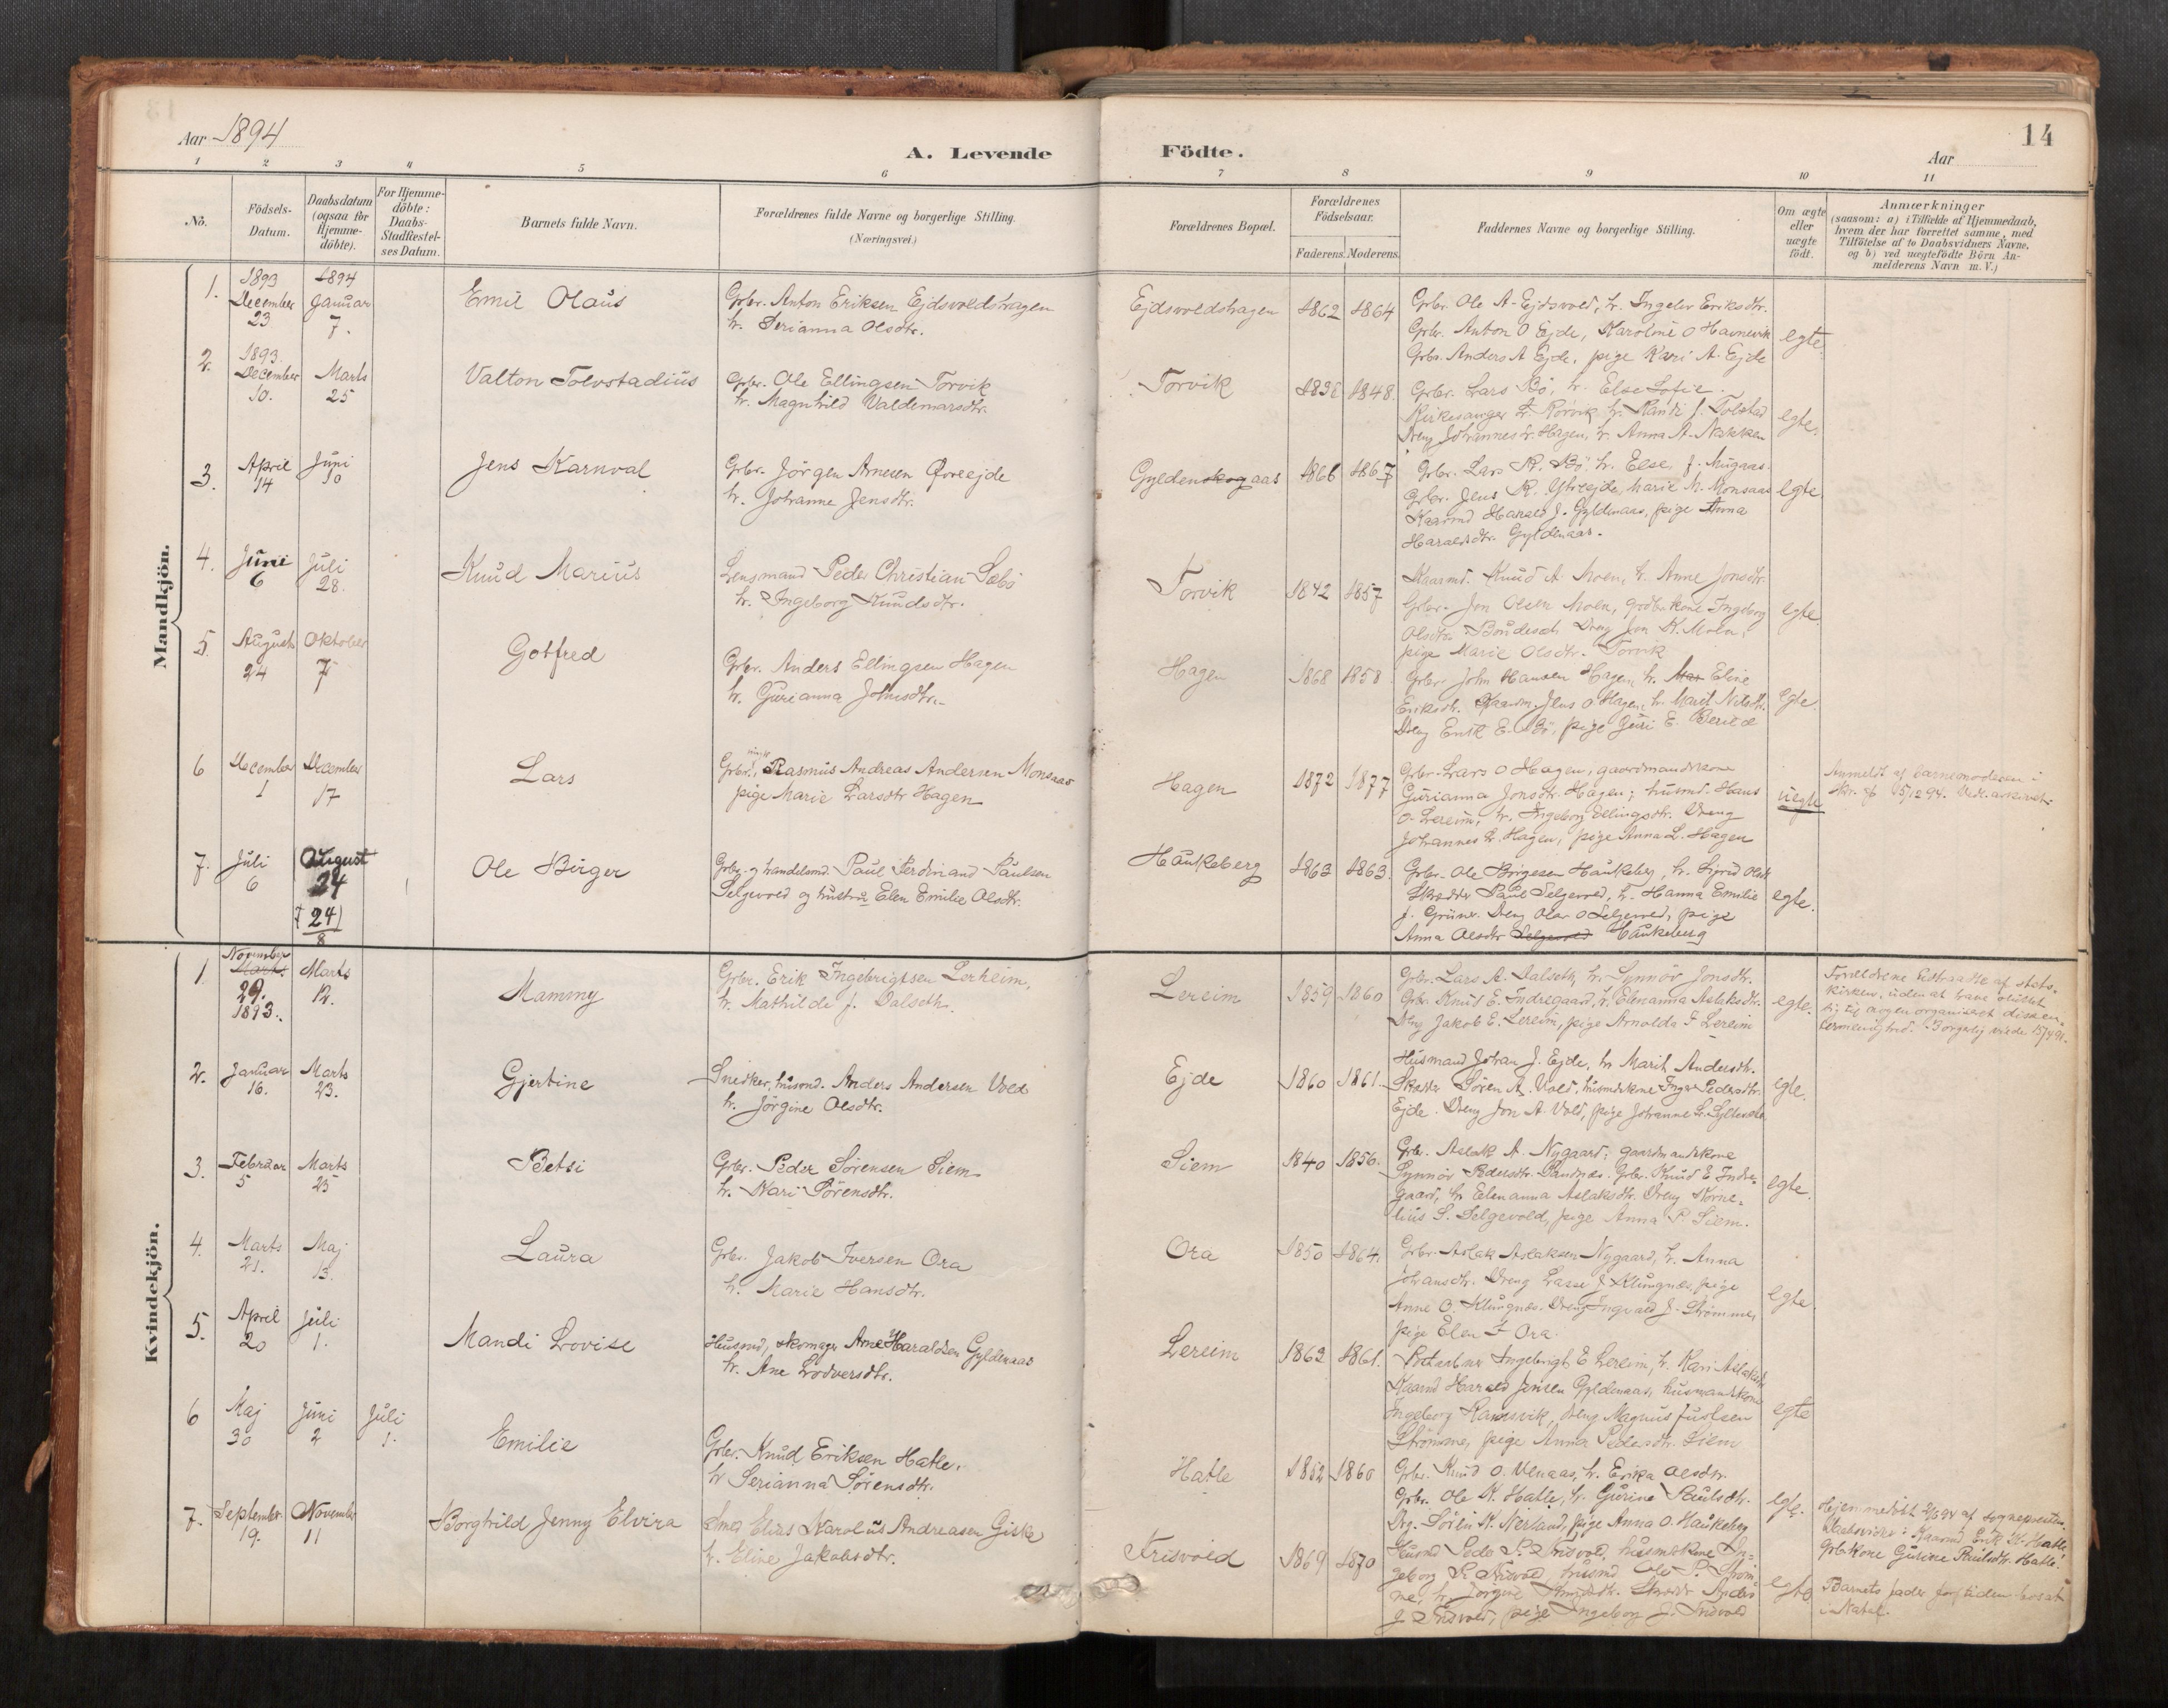 14
Aar 1894
A. Levende Fødte.
Aar
1 2 3 4 5 6 7 8 9 10 11
No.
Födsels-Datum.
Daabsdatum (ogsaa for Hjemme-döbte).
For Hjemme-döbte: Daabs-Stadfæstel-ses Datum.
Barnets fulde Navn.
Forældrenes fulde Navne og borgerlige Stilling.
(Næringsvei.)
Forældrenes Bopæl.
Forældrenes Födselsaar.
Faderens. Moderens.
Faddernes Navne og borgerlige Stilling.
Om ægte eller uægte födt.
Anmærkninger
(saasom: a) i Tilfælde af Hjemmedaab,
hvem der har forrettet samme, med
Tilföielse af to Daabsvidners Navne,
og b) ved uægtefödte Börn An-
melderens Navn m. V.)
Mandkjön.
1. 1893 December 23 1894 Januar 7.
Emil Olaus
Grbr. Anton Eriksen Ejdsvoldshagen
h. Serianna Olsdtr.
Ejdsvoldshagen 1862 1864
Grbr. Ole A. Ejdsvold, h. Ingeler Eriksdtr.
Grbr. Anton O Ejde, Karoline O Havnevik
Grbr. Anders A Ejde, pige Kari A. Ejde
egte.
2. 1893. December 10. Marts 25
Valton Tolvstadius
Grbr. Ole Ellingsen Torvik
h. Magnhild Valdemarsdtr.
Torvik 1848.
Grbr. Lars Bö, h. Else Sofie.
Kirkesanger L. Rörvik, h. Randi J. Tolstad
Dreng Johannes L. Hagen, h. Anna A. Nakken
egte.
3. April 14 Juni 10
Jens Karnval
Grbr. Jörgen Arnesen Övreejde
h. Johanne Jensdtr.
Gyldenskogaas 1866 1867
Grbr. Lars R. Bö, h. Else J. Augaas.
Grbr. Jens R. Ytreejde, Marie M. Monsaas
Kaarmd Harald J. Gyldenaas, pige Anna
Haraldsdtr. Gyldenaas.
egte
4. Juni 6 Juli 28.
Knud Marius
Lensmand Peder Christian Sæbö
h. Ingeborg Knudsdtr.
Torvik 1842 1857
Kaarmd. Knud A. Moen, h. Anne Jonsdtr.
Grbr. Jon Olsen Moen, grdbrkone Ingeborg
Olsdtr. Dreng Jon K. Moen,
pige Marie Olsdtr. Torvik
egte.
5. August 24 Oktober 7
Gotfred
Grbr. Anders Ellingsen Hagen
h. Gurianna Johnsdtr.
Hagen 1868 1858
Grbr. John Hansen Hagen, h. Eline
Eriksdtr. Kaarm. Jens O Hagen, h. Marit Nilsdtr.
Dreng Erik E. Bö, pige Guri E.
egte.
6 December 1 December 17
Lars
Grbr. Rasmus Andreas Andersen Monsaas
pige Marie Larsdtr Hagen
Hagen 1872 1877
Grbr. Lars O Hagen, gaardmandskone
Gurianna Jonsdtr. Hagen; husmd. Hans
O. Lereim, h. Ingeborg Ellingsdtr. Dreng
Johannes L. Hagen, pige Anna L. Hagen
uegte
Anmeldt af barnemoderen i
skr. af 15/12 94. Vedl. arkivet.
7. Juli 6 August 24
24/8
Ole Birger
Grbr. og handelsmd. Paul Ferdinand Paulsen
Selgevold og hustru Elen Emilie Olsdtr.
Haukeberg 1862 1863.
Grbr. Ole Börgesen Haukeberg, h. Sigrid Olsdtr
Skrædder Paul Selgevold, h. Hanna Emilie
J. Grüner. Dreng Olav O Selgevold, pige
Anna Olsdtr Selgevold Haukeberg
egte.
Kvindekjön.
1. November Marts 29. 1893. Marts 12.
Mammy
Grbr. Erik Ingebrigtsen Lerheim,
h. Mathilde J. Dalseth.
Lereim 1859 1860
Grbr. Lars A. Dalseth, h. Synnöv Jonsdtr.
Grbr. Knud E. Indregaard, h. Elenanna Aslaksdtr.
Dreng Jakob E. Lereim, pige Arnolda I Lereim
egte.
Forældrene udtraadte af stats-
kirken, uden at have sluttet
sig til nogen organiseret dissen-
termenighed. Borgerlig viede
2. Januar 16. Marts 23.
Gjertine
Snedker, husmd. Anders Andersen Vold
h. Jörgine Olsdtr.
Ejde 1860 1861.
Husmand Johan J. Ejde, h. Marit Andersdtr.
Skrædder Sören A. Vold, husmdskone Inger Pedersdtr.
Ejde. Dreng Jon A. Vold, pige Johanne
egte.
3. Februar 5 Marts 25
Betsi
Grbr. Peder Sörensen Siem
h. Kari Sörensdtr.
Siem 1840 1856.
Grbr. Aslak A. Nygaard; gaardmandskone
Synnöv Pedersdtr. Sandnæs. Grbr. Knud E Indre-
gaard, h. Elenanna Aslaksdtr. Dreng Korne-
lius S. Selgevold, pige Anna P. Siem.
egte.
4. Marts 21. Maj 13.
Laura
Grbr. Jakob Iversen Ora
h. Marie Hansdtr.
Ora 1850 1864.
Grbr. Aslak Aslaksen Nygaard, h. Anna
Johansdtr. Dreng Lasse J Klungnæs, pige
Anne O. Klungnæs. Dreng Ingvald J. Strömme,
pige Elen I Ora.
egte.
5. April 20 Juli 1.
Mandi Lovise
Husmd, skomager Arne Haraldsen Gyldenaas
h. Ane Lodversdtr.
Lereim 1862 1861.
Ingebrigt E Lereim, h. Kari Aslaksdtr
Kaarmd Harald Jensen Gyldenaas, husmandskone
Ingeborg Ramsvik, dreng Magnus Juulsen
Strömme, pige Anna Pedersdtr. Siem
egte
6 Maj 30 Juni 2 Juli 1.
Emilie
Grbr. Knud Eriksen Hatle.
h Serianna Sörensdtr.
Hatle 1852 1860
Grbr. Knud O. Ulnaas, h. Erika Olsdtr.
Grbr. Ole K. Hatle, h. Gurine Paulsdtr.
Drg. Sören K. Nerland, pige Anna O. Haukeberg
egte.
Hjemmedöbt 2/6 94 af sognepresten.
Daabsvidner: Kaarmd Erik K. Hatle
grbkone Gurine Paulsdtr. Hatle.
7. September 19. November 11
Borghild Jenny Elvira
Smed Elias Karolus Andreasen Giske
h. Eline Jakobsdtr.
Frisvold 1869 1870
Husmd Peder P. Frisvold, husmdskone In-
geborg P. Frisvold, husmd Ole P. Ström-
me, h. Jörgine Knudsdtr. Skrædder Anders
J. Frisvold, pige Ingeborg J. Frisvold
egte
Barnets fader for tiden bosat
i Natal.